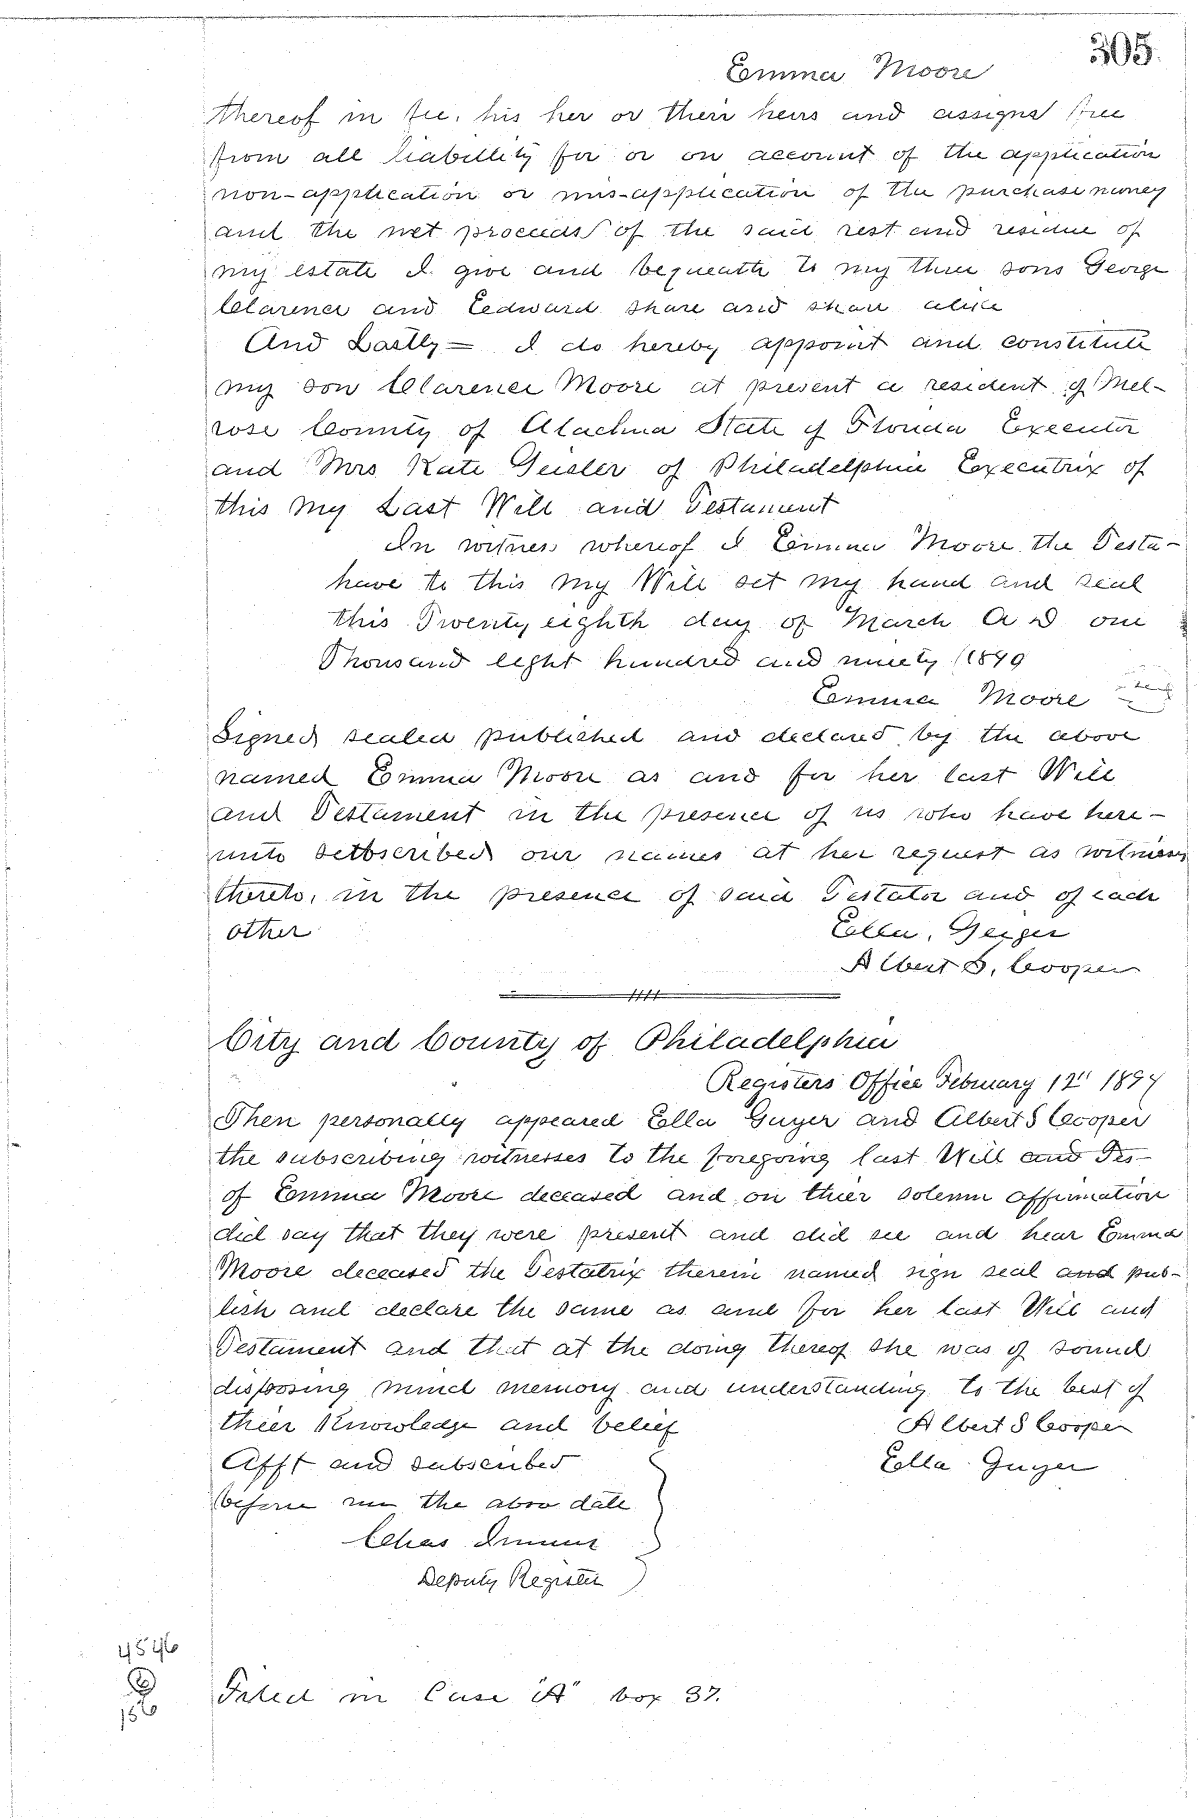 305.
Emma Moore
thereof in fee, his her or their heirs and assigns free
from all liabillity for or on account of the application
non-application or mis-application of the purchase money
and the net proceeds of the said rest and residue of
my estate I give and bequeath to my three sons George
Clarence and Eedward share and share alike
And Lastly = I do hereby appoint and constitute
my son Clarence Moore at present a resident of Mel-
rose County of Alachua State of Florida Executor
and Mrs Kate Geisler of Philadelphia Executrix of
this my Last Will and Testament
In witness whereof I Emma Moore the Testa-
have to this my Will set my hand and seal
this Twenty eighth day of March A D one
Thousand eight hundred and ninety (1890
Emma Moore seal
Signed sealed published and declared by the above
named Emma Moore as and for her last Will
and Testament in the presence of us who have here-
unto setbscribed our names at her request as witnesses
thereto, in the presence of said Testator and of each
other Ella, Geiger
Albert S, Cooper
City and County of Philadelphia
Registers Office February 12" 1894
Then personally appeared Ella Guyer and Albert S Cooper
the subscribing witnesses to the foregoing last Will and Tes-
of Emma Moore deceased and on thier solemn affirmation
did say that they were present and did see and hear Emma
Moore deceased the Testatrix therein named sign seal and pub-
lish and declare the same as and for her last Will and
Testament and that at the doing thereof she was of sound
disposing mind memory and understanding to the best of
thier Knowledge and belief Albert S Cooper
Afft and subscribed Ella Guyer
before me the above date
Chas Irwin
Deputy Register
4546
156
Filed in Case "A" box 37.